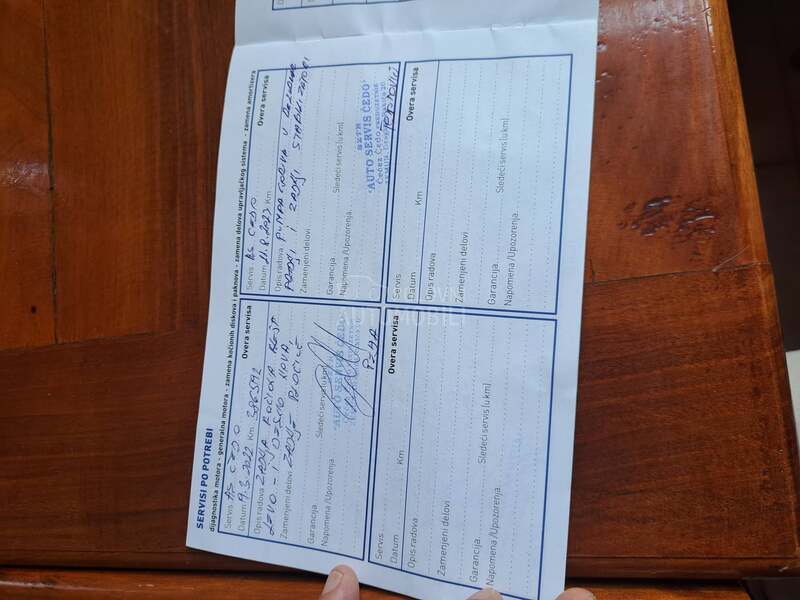 SERVISI PO POTREBI
dijagnostika motora - generalna motora - zamena kočionih diskova i paknova - zamena delova upravljačkog sistema - zamena amortizera
Servis AS CEDO
Datum 9.5.2022 Km
Overa servisa
Opis radova ZADNJA KOČIONA
LEVO - I DESNO NOVA,
Zamenjeni delovi ZADNJE PLOČICE
Garancija
Sledeći servis (u km)
Napomena /Upozorenja
'AUTO SERVIS ČEDO'
Servis AS CEDO
Datum 11.8.2023 Km
Overa servisa
Opis radova PUMPA GORIVA U
PREDNJI I ZADNJI STABILIZATORI
Zamenjeni delovi
Garancija
Sledeći servis (u km)
Napomena /Upozorenja
SZTR
'AUTO SERVIS ČEDO'
Servis
Datum
Km
Overa servisa
Opis radova
Zamenjeni delovi
Garancija
Sledeći servis (u km)
Napomena /Upozorenja
Servis
Datum
Km
Overa servisa
Opis radova
Zamenjeni delovi
Garancija
Sledeći servis (u km)
Napomena /Upozorenja